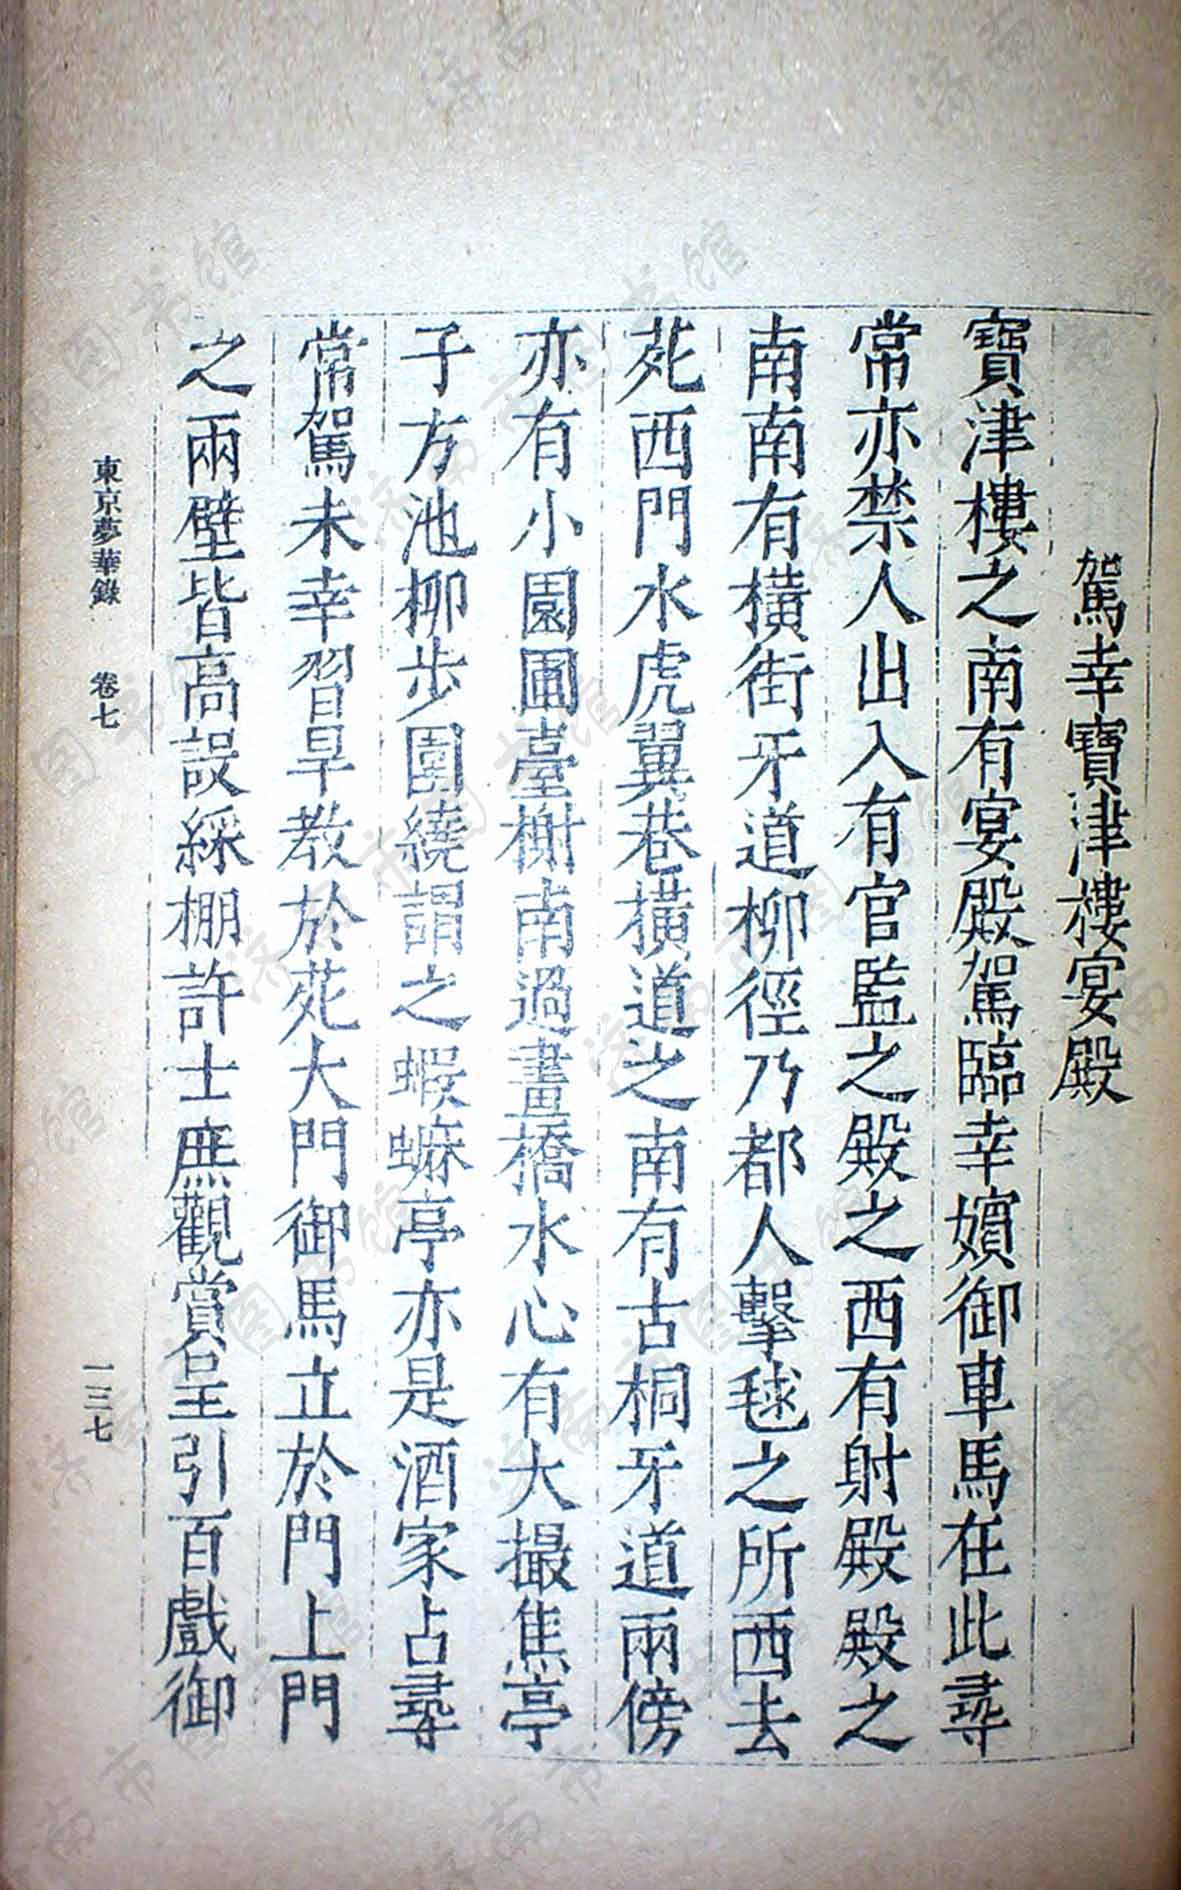 駕幸寶津樓宴殿
寶津樓之南有宴殿駕臨幸嬪御車馬在此尋
常亦禁人出入有官監之殿之西有射殿殿之
南南有橫街牙道柳徑乃都人擊毬之所西去
苑西門水虎翼巷橫道之南有古桐牙道兩傍
亦有小園圃臺榭南過畫橋水心有大撮焦亭
子方池柳步圍繞謂之蝦蟆亭亦是酒家占尋
常駕未幸習旱教於苑大門御馬立於門上門
之兩壁皆高設綵棚許士庶觀賞呈引百戲御
東京夢華錄 卷七
一三七
济南市图书馆